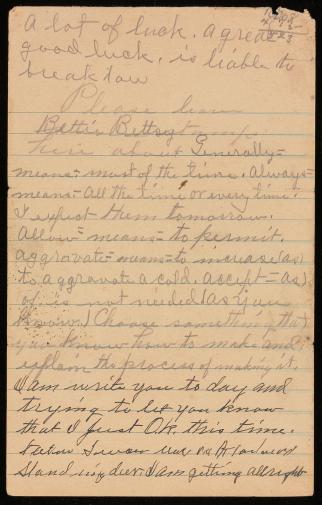 a lot of luck. a great
good luck. is liable to
break low
Please
Bettie Bettsy
here about Generally=
means:- most of the time. Always=
means:- all the time or every time.
I expect them tomorrow.
allow= means:= to permit.
aggravate= means:= to increase (as)
to aggravate a cold. accept = as)
of is not needed (as you
know.) Choose something that
you know how to make and
explain the process of making it.
I am write you to day and
trying to let you know
that I just O.k. this time.
stand my dear. I am getting allright